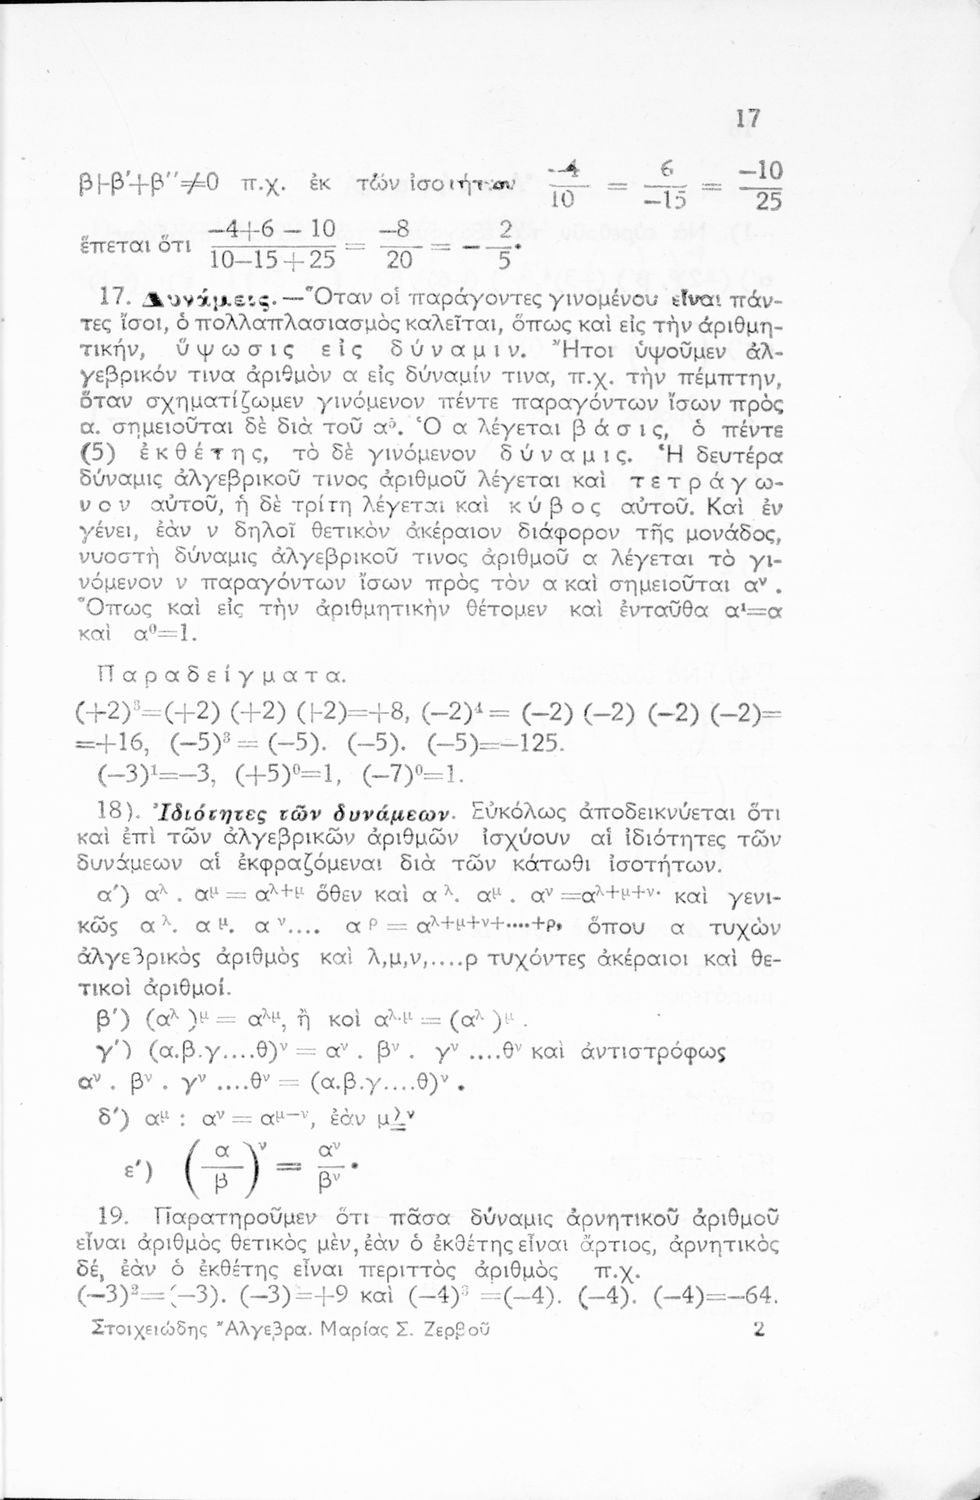 17
β+β'+β''≠0 π.χ. ἐκ τῶν ἰσοτήτων −4/10 = 6/−15 = −10/25
ἕπεται ὅτι −4+6 − 10/10−15+25 = −8/20 = − 2/5·
17. Δυνάμεις.—Ὅταν οἱ παράγοντες γινομένου εἶναι πάν-
τες ἴσοι, ὁ πολλαπλασιασμὸς καλεῖται, ὅπως καὶ εἰς τὴν ἀριθμη-
τικήν, ὕψωσις εἰς δύναμιν. Ἤτοι ὑψοῦμεν ἀλ-
γεβρικόν τινα ἀριθμὸν α εἰς δύναμίν τινα, π.χ. τὴν πέμπτην,
ὅταν σχηματίζωμεν γινόμενον πέντε παραγόντων ἴσων πρὸς
α. σημειοῦται δὲ διὰ τοῦ α⁵. Ὁ α λέγεται βάσις, ὁ πέντε
(5) ἐκθέτης, τὸ δὲ γινόμενον δύναμις. Ἡ δευτέρα
δύναμις ἀλγεβρικοῦ τινος ἀριθμοῦ λέγεται καὶ τετράγω-
νον αὐτοῦ, ἡ δὲ τρίτη λέγεται καὶ κύβος αὐτοῦ. Καὶ ἐν
γένει, ἐὰν ν δηλοῖ θετικὸν ἀκέραιον διάφορον τῆς μονάδος,
νυοστὴ δύναμις ἀλγεβρικοῦ τινος ἀριθμοῦ α λέγεται τὸ γι-
νόμενον ν παραγόντων ἴσων πρὸς τὸν α καὶ σημειοῦται αᵛ.
Ὅπως καὶ εἰς τὴν ἀριθμητικὴν θέτομεν καὶ ἐνταῦθα α¹=α
καὶ α⁰=1.
Παραδείγματα.
(+2)³=(+2) (+2) (+2)=+8, (−2)⁴= (−2) (−2) (−2) (−2)=
=+16, (−5)³ = (−5). (−5). (−5)=−125.
(−3)¹=−3, (+5)⁰=1, (−7)⁰=1.
18). Ἰδιότητες τῶν δυνάμεων. Εὐκόλως ἀποδεικνύεται ὅτι
καὶ ἐπὶ τῶν ἀλγεβρικῶν ἀριθμῶν ἰσχύουν αἱ ἰδιότητες τῶν
δυνάμεων αἱ ἐκφραζόμεναι διὰ τῶν κάτωθι ἰσοτήτων.
α') α^λ . α^μ = α^λ+μ ὅθεν καὶ α^λ. α^μ . α^ν =α^λ+μ+ν· καὶ γενι-
κῶς α^λ. α^μ. α^ν.... α^ρ = α^λ+μ+ν+....+ρ, ὅπου α τυχὼν
ἀλγεβρικὸς ἀριθμὸς καὶ λ,μ,ν,....ρ τυχόντες ἀκέραιοι καὶ θε-
τικοὶ ἀριθμοί.
β') (α^λ )^μ = α^λμ, ἢ κοὶ α^λ.μ = (α^λ )^μ .
γ') (α.β.γ....θ)^ν = α^ν . β^ν . γ^ν ....θ^ν καὶ ἀντιστρόφως
α^ν . β^ν . γ^ν ....θ^ν = (α.β.γ....θ)^ν .
δ') α^μ : α^ν = α^μ−ν, ἐὰν μ≥ν
ε') (α/β)^ν = α^ν/β^ν·
19. Παρατηροῦμεν ὅτι πᾶσα δύναμις ἀρνητικοῦ ἀριθμοῦ
εἶναι ἀριθμὸς θετικὸς μὲν, ἐὰν ὁ ἐκθέτης εἶναι ἄρτιος, ἀρνητικὸς
δέ, ἐὰν ὁ ἐκθέτης εἶναι περιττὸς ἀριθμὸς π.χ.
(−3)²=(−3). (−3)=+9 καὶ (−4)³ =(−4). (−4). (−4)=−64.
Στοιχειώδης Ἄλγεβρα. Μαρίας Σ. Ζερβοῦ 2